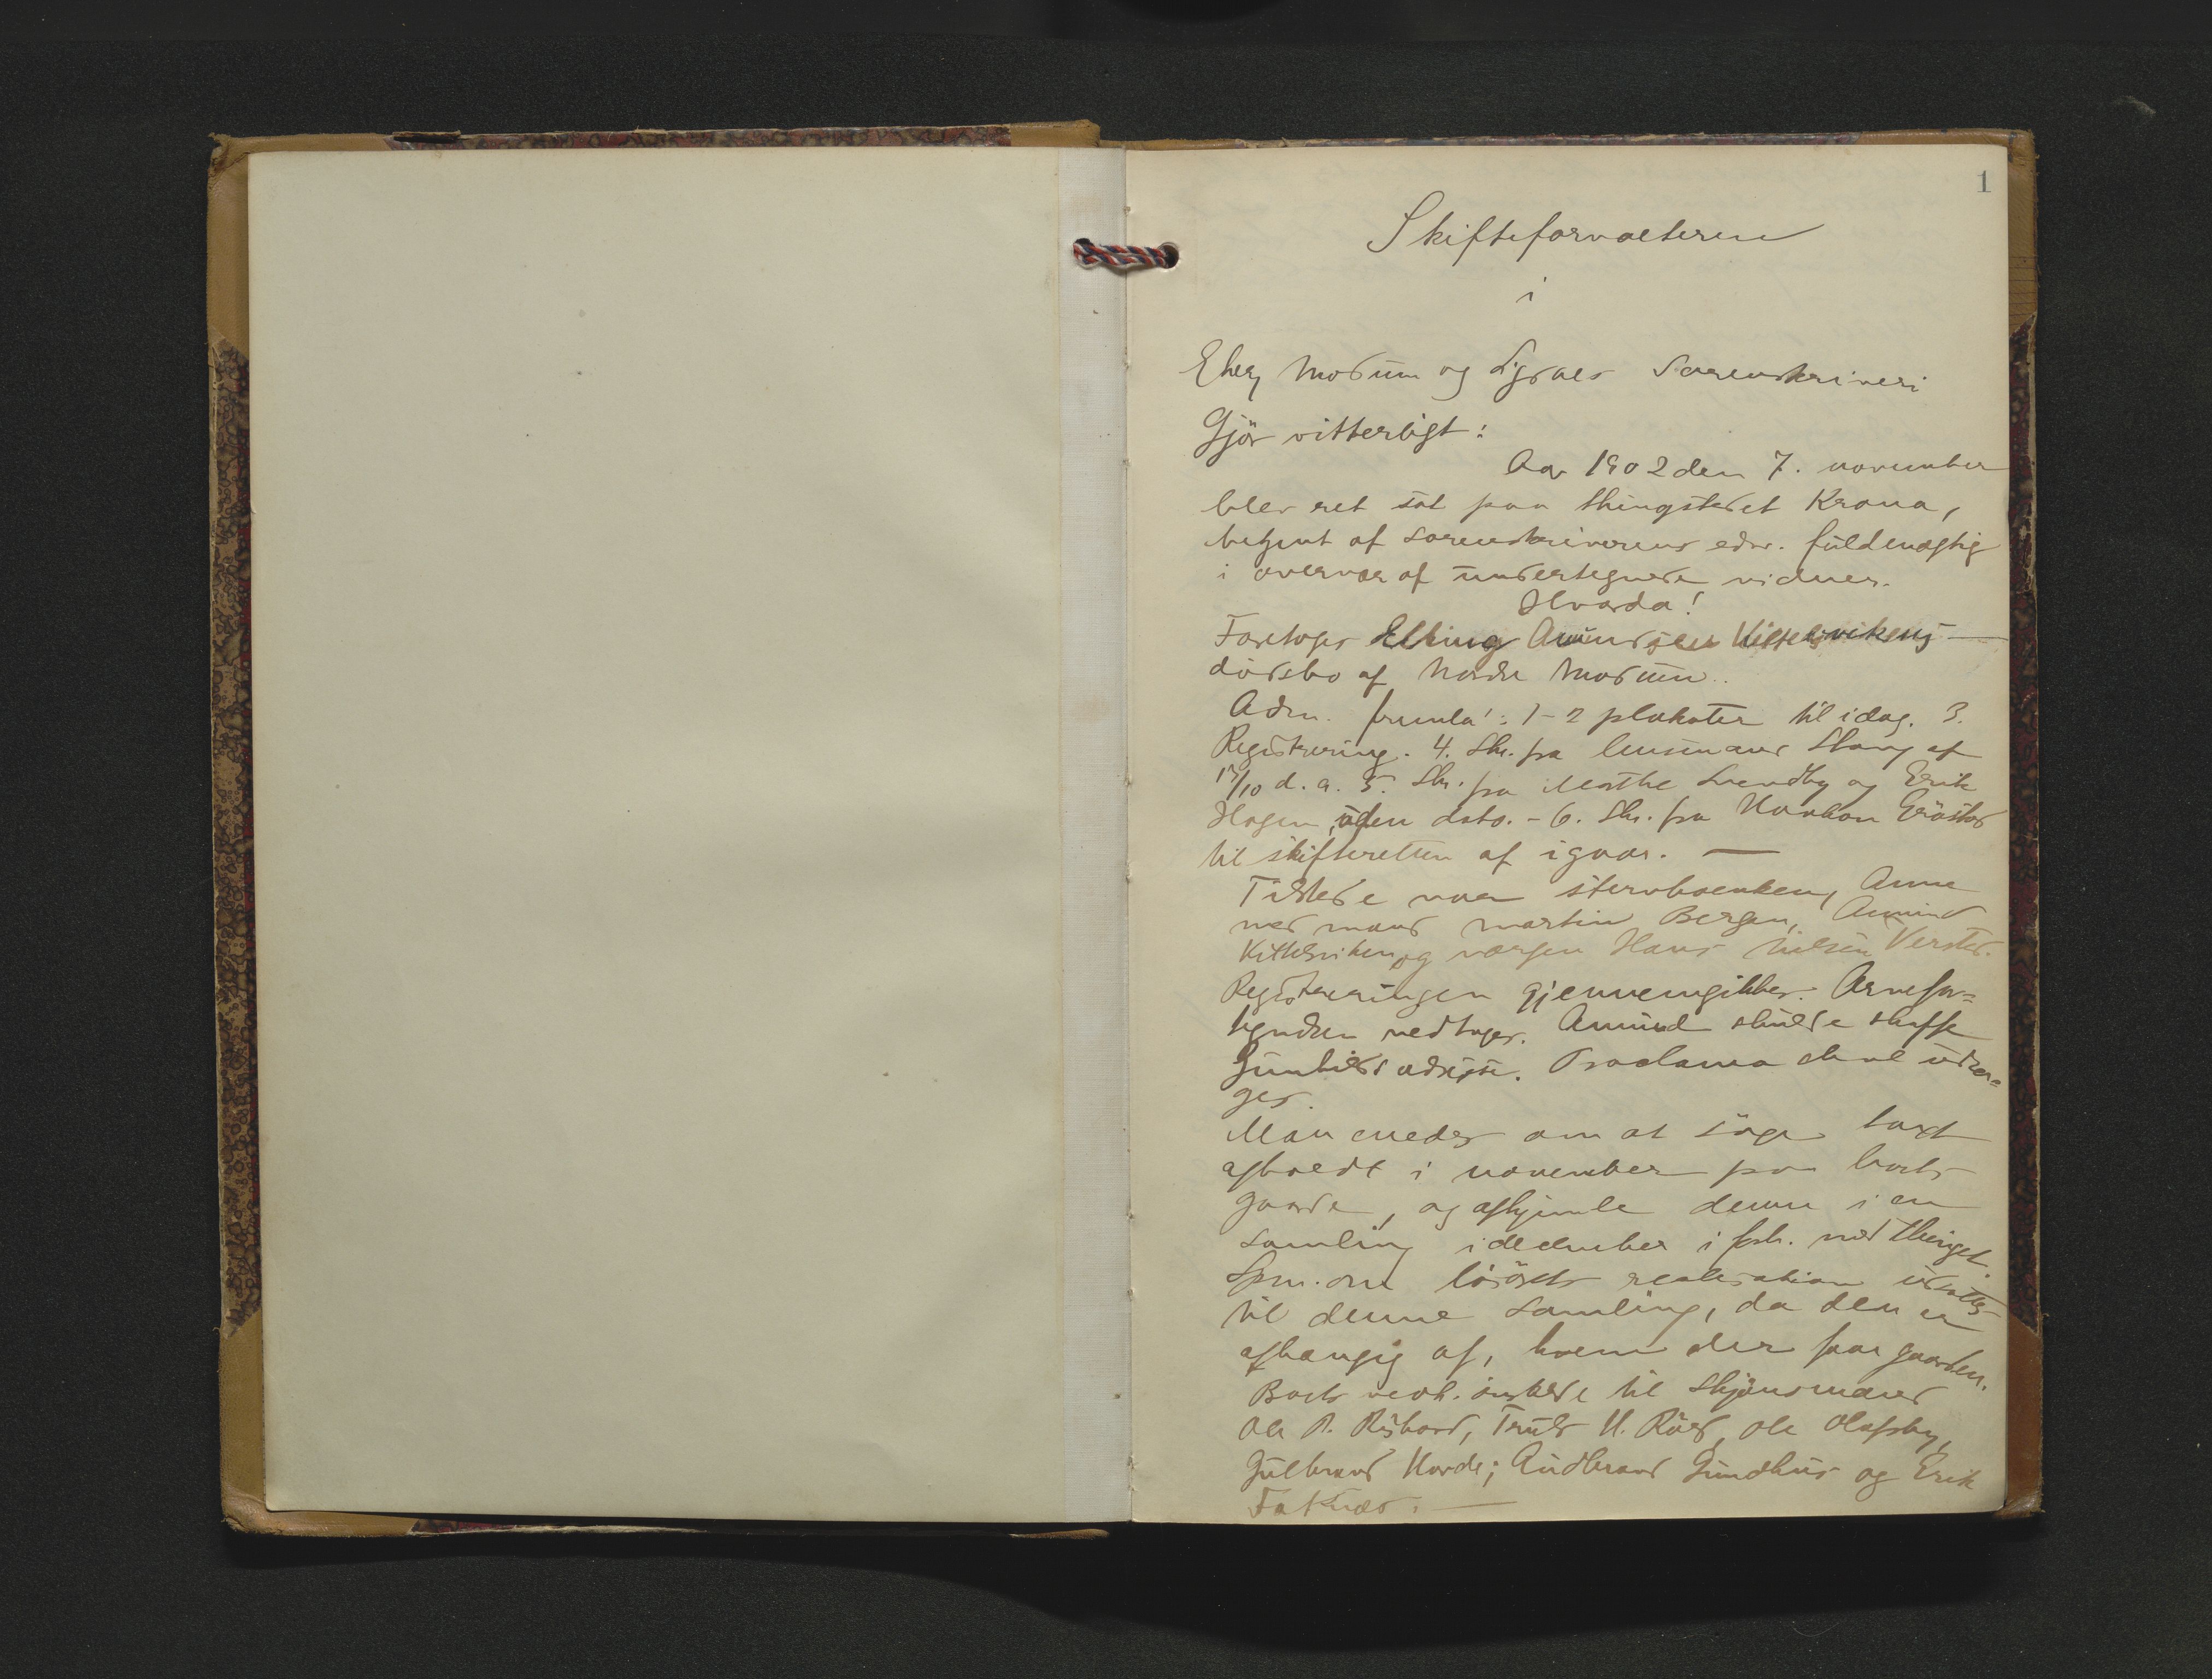 1
Skifteforvalteren
i
Eker, Modum og Sigdals Sorenskriveri
Gjør vitterligt:
Aar 1902 den 7. november
blev ret sat paa thingstedet Krona,
betjent af sorenskriverens edsv. fuldmægtig
i overvær af undertegnede vidner.
Hvorda!
Foretoges Elling Amundsen Kittelsvikens
dødsbo af Nordre Modum.
Adm. freml.: 1-2 plakater til idag. 3.
Registrering. 4. Skr. fra lensmand Stang af
13/10 d. a. 5. Skr. fra Marthe Svendby og Erik
Hagen, uden dato. - 6. Skr. fra Haakon Grøstad
til skifteretten af igaar. —
Tilstede var stervboenken, Anne
med mand Martin Bergan, Amund
Kittelsviken og værgen Hans Nilsen
Registreringen gjennemgikkes. Arvefor=
tegnelsen vedtoges. Amund skulde skaffe
Gunhilds adresse. Proclama skal udstæ=
des.
Man enedes om at søge taxt
afholdt i november paa boets
gaarde, og afhjemle denne i en
samling i december i forb. med thinget.
Spm. om løsørets realisation udsattes
til denne samling, da den er
afhængig af, hvem der faar gaarden.
Boets vedk. ønskede til skjønsmænd
Ole P. Ruhaard, Truls H. Rud, Ole Olafsby,
Gulbrand Horde; Gudbrand Gundhus og Erik
Fatnæs. —